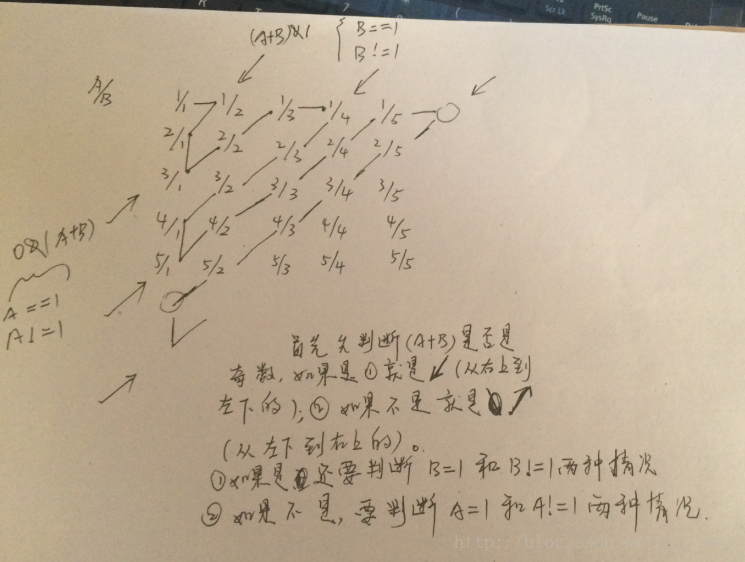 (A+B)&1 { B==1
B!=1
A/B
1/1 1/2 1/3 1/4 1/5
2/1 2/2 2/3 2/4 2/5
3/1 3/2 3/3 3/4 3/5
4/1 4/2 4/3 4/4 4/5
5/1 5/2 5/3 5/4 5/5
0&(A+B)
A==1
A!=1
首先先判断(A+B)是否是
奇数,如果是①就是↙(从右上到
左下的);②如果不是就是↗
(从左下到右上的)。
①如果是还要判断B=1和B!=1两种情况
②如果不是,要判断A=1和A!=1两种情况.
http://blog.